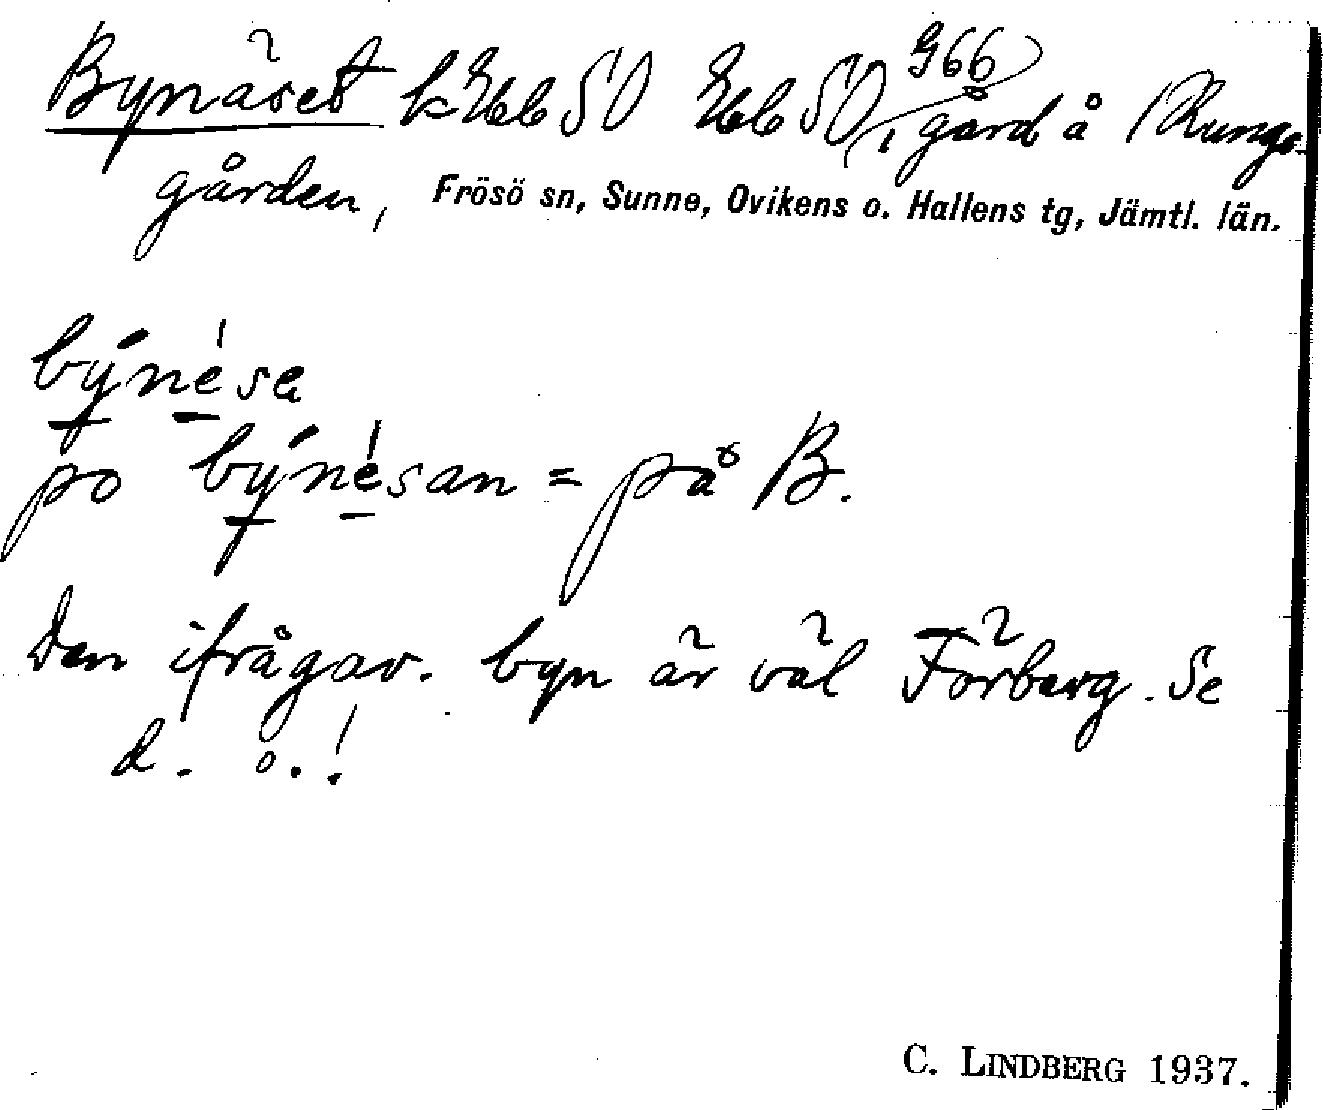 Bynäset k Hbl SO Hbl SO, G66 gård å Rungo-
gården, Frösö sn, Sunne, Ovikens o. Hallens tg, Jämtl. län.
býnésa
po býnésan = på B.
Den ifrågav. byn är väl Förberg. Se
d. o.!
C. LINDBERG 1937.